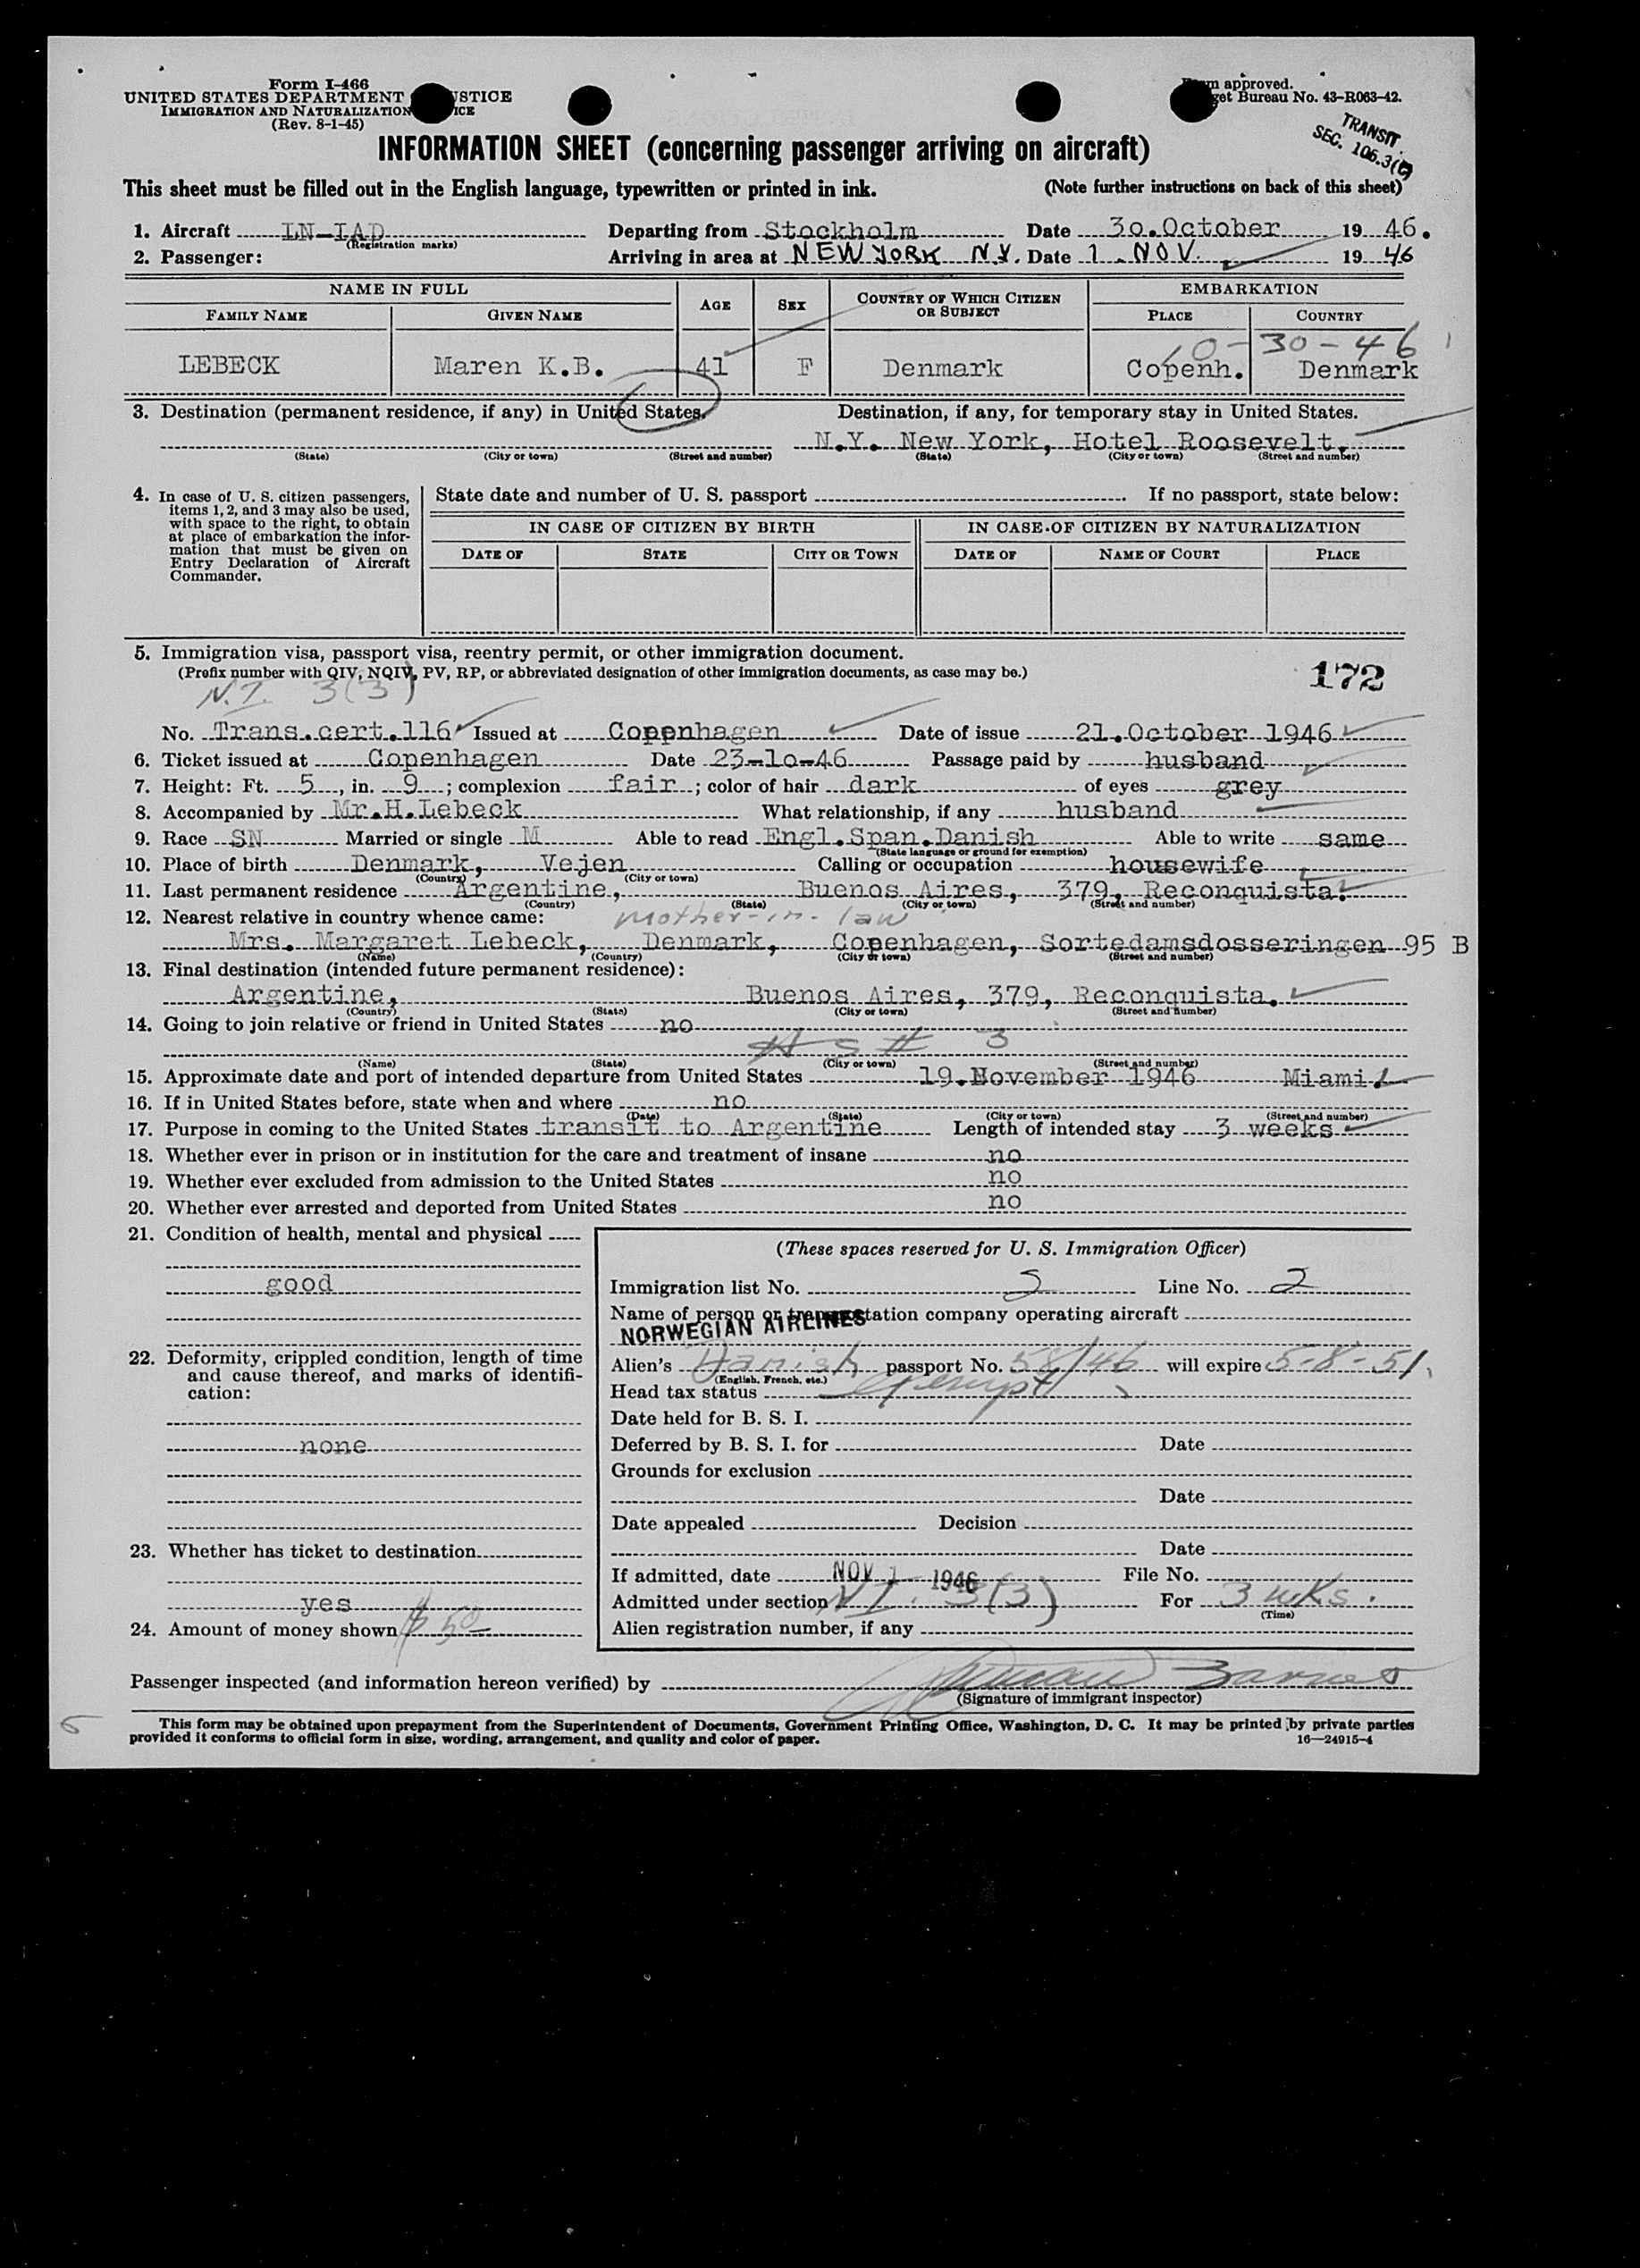 Form I-466
UNITED STATES DEPARTMENT STICE
IMMIGRATION AND NATURALIZATION ICE
(Rev. 8-1-45)
approved.
get Bureau No. 43-R063-42.
TRANSIT
SEC. 106.3(C)
INFORMATION SHEET (concerning passenger arriving on aircraft)
This sheet must be filled out in the English language, typewritten or printed in ink. (Note further instructions on back of this sheet)
1. Aircraft LN-IAD Departing from Stockholm Date 30.October 19 46.
(Registration marks)
2. Passenger: Arriving in area at NEW YORK N.Y. Date 1 NOV. 19 46
NAME IN FULL AGE SEX COUNTRY OF WHICH CITIZEN OR SUBJECT EMBARKATION
FAMILY NAME GIVEN NAME PLACE COUNTRY
10-30-46
LEBECK Maren K.B. 41 F Denmark Copenh. Denmark
3. Destination (permanent residence, if any) in United States. Destination, if any, for temporary stay in United States.
N.Y. New York, Hotel Roosevelt.
(State) (City or town) (Street and number) (State) (City or town) (Street and number)
4. In case of U. S. citizen passengers, items 1, 2, and 3 may also be used, with space to the right, to obtain at place of embarkation the information that must be given on Entry Declaration of Aircraft Commander.
State date and number of U. S. passport . If no passport, state below:
IN CASE OF CITIZEN BY BIRTH IN CASE OF CITIZEN BY NATURALIZATION
DATE OF STATE CITY OR TOWN DATE OF NAME OF COURT PLACE
5. Immigration visa, passport visa, reentry permit, or other immigration document.
(Prefix number with QIV, NQIV, PV, RP, or abbreviated designation of other immigration documents, as case may be.)
172
N.I. 3(3)
No. Trans.cert.116 Issued at Coppnhagen Date of issue 21.October 1946
6. Ticket issued at Copenhagen Date 23-10-46 Passage paid by husband
7. Height: Ft. 5, in. 9; complexion fair; color of hair dark of eyes grey
8. Accompanied by Mr.H.Lebeck What relationship, if any husband
9. Race SN Married or single M Able to read Engl.Span.Danish Able to write same
(State language or ground for exemption)
10. Place of birth Denmark, Vejen Calling or occupation housewife
(Country) (City or town)
11. Last permanent residence Argentine, Buenos Aires, 379, Reconquista.
(Country) (State) (City or town) (Street and number)
12. Nearest relative in country whence came: mother-in-law
Mrs. Margaret Lebeck, Denmark, Copenhagen, Sortedamsdosseringen 95 B
(Name) (Country) (City or town) (Street and number)
13. Final destination (intended future permanent residence):
Argentine, Buenos Aires, 379, Reconquista.
(Country) (State) (City or town) (Street and number)
14. Going to join relative or friend in United States no
3
(Name) (State) (City or town) (Street and number)
15. Approximate date and port of intended departure from United States 19.November 1946 Miami
16. If in United States before, state when and where no
(Date) (State) (City or town) (Street and number)
17. Purpose in coming to the United States transit to Argentine Length of intended stay 3 weeks
18. Whether ever in prison or in institution for the care and treatment of insane no
19. Whether ever excluded from admission to the United States no
20. Whether ever arrested and deported from United States no
21. Condition of health, mental and physical
good
22. Deformity, crippled condition, length of time and cause thereof, and marks of identification:
none
23. Whether has ticket to destination
yes
24. Amount of money shown $50
(These spaces reserved for U. S. Immigration Officer)
Immigration list No. 5 Line No. 2
Name of person or transportation company operating aircraft
NORWEGIAN AIRLINES
Alien's Danish passport No. 58/46 will expire 5-8-51
(English, French, etc.)
Head tax status exempt
Date held for B. S. I.
Deferred by B. S. I. for Date
Grounds for exclusion
Date
Date appealed Decision
Date
If admitted, date NOV 1 1946 File No.
Admitted under section N.I. 3(3) For 3 wks.
(Time)
Alien registration number, if any
Passenger inspected (and information hereon verified) by Barnes
(Signature of immigrant inspector)
This form may be obtained upon prepayment from the Superintendent of Documents, Government Printing Office, Washington, D. C. It may be printed by private parties
provided it conforms to official form in size, wording, arrangement, and quality and color of paper. 16—24915-4